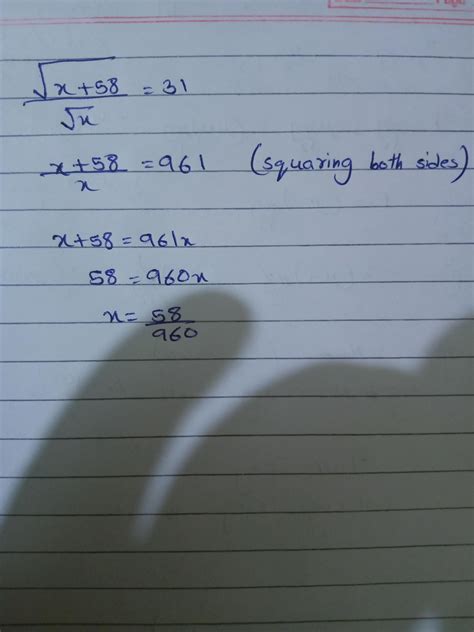 √x+58 / √x = 31
x+58 / x = 961 (squaring both sides)
x+58 = 961x
58 = 960x
x = 58 / 960